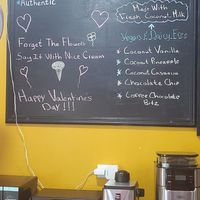 *Authentic
Forget The Flowers
Say It With Nice Cream
Happy Valentine's
Day !!!
Made With
Fresh Coconut Milk
Vegan & Dairy Free
* Coconut Vanilla
* Coconut Pineapple
* Coconut
* Chocolate Chip
* Coffee Chocolate